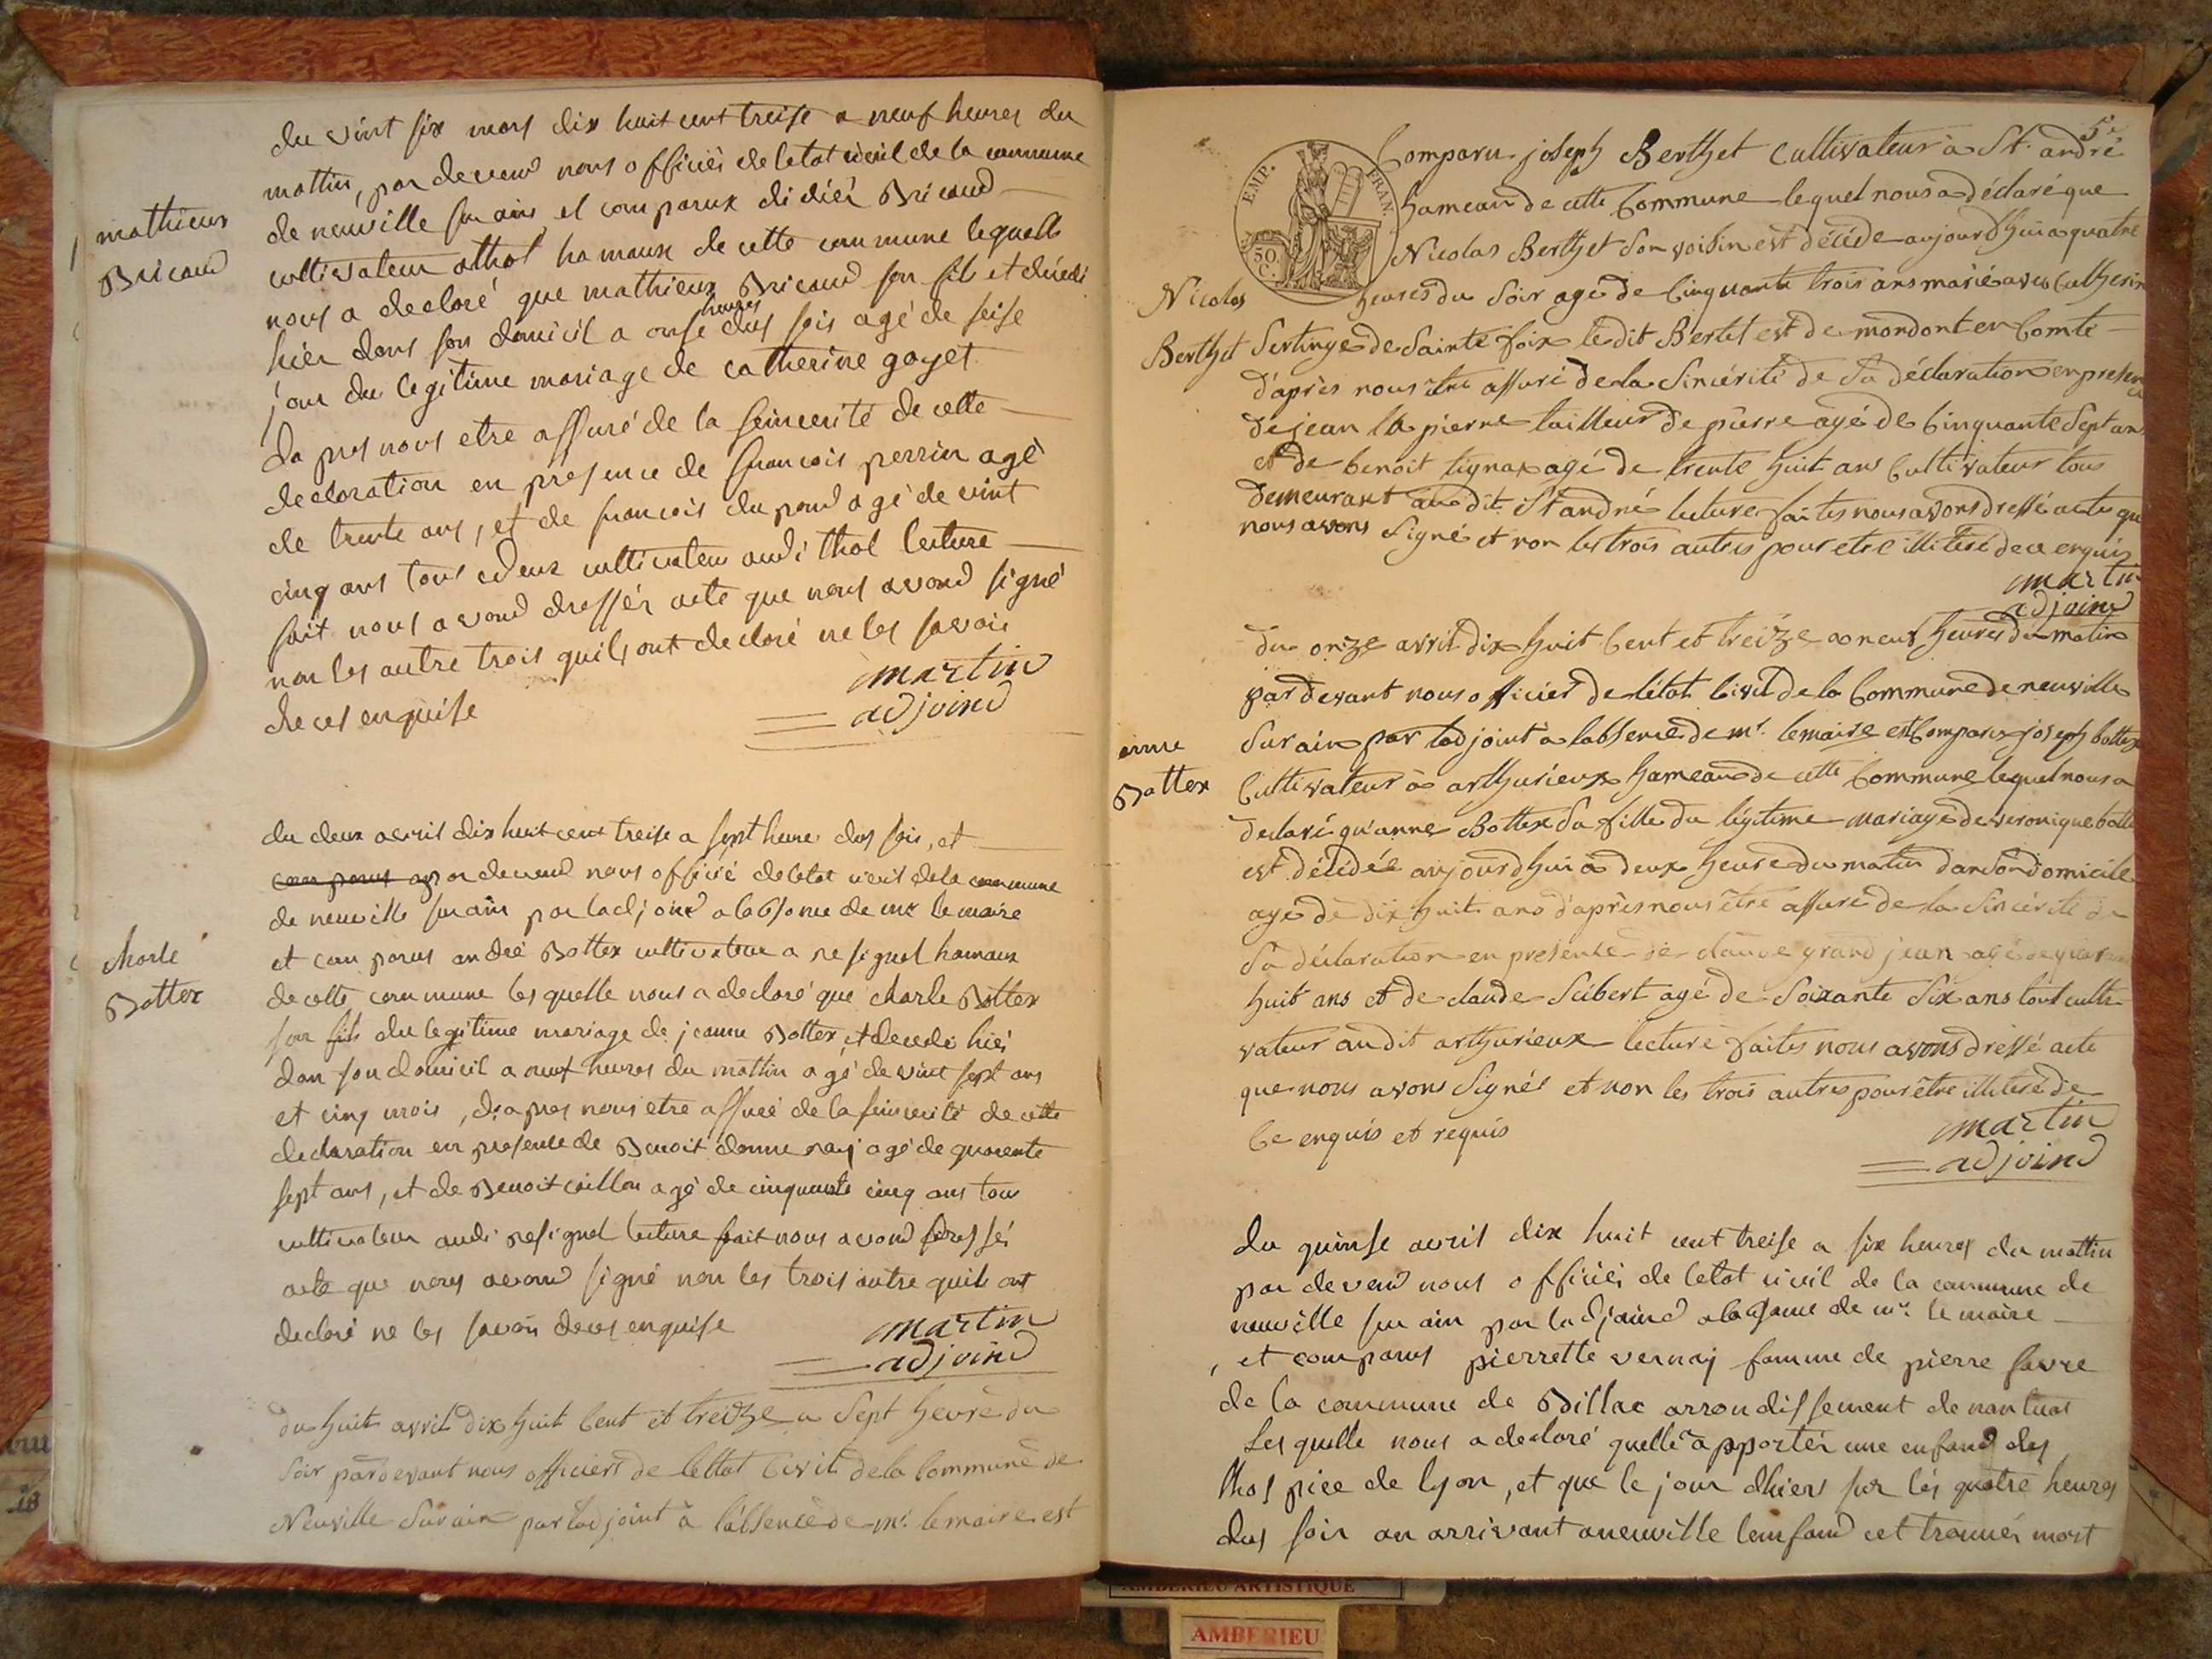 du vint six mars dix huit cent treise a neuf heures du
mattin, par devend nous officiér de letat cicvil de la commune
de neuville sur ains et comparux didiér Bricaud
mathieux
Bricaud
cultivateur athol hamaux de cette commune lequelle
nous a declaré que mathieux Bricaud son fils et décédé
hiér dans son domicil a onse heures dus soir agé de seise
jour du legitime mariage de catherine goyet
da pres nous etre assuré de la seincerité de cette
declaration en presence de francois perrin agé
de trente ans, et de francois dupond agé de vint
cinq ans tous deux cultivateur audi thol lecture
fait nous avond dressér acte que nous avond signé
non les autre trois quils ont declaré ne les savoir
de ces enquise
martin
adjoind
du deux avril dix huit cent treise a sept heure dus soir, et
comparus a par devend nous officié de letat cicvil de la commune
de neuville sur ain par ladjoind alabsence de mr le maire
charle
Bottex
et comparus andré Bottex cultivateur a resignel hamaux
de cette commune lesquelle nous a declaré que charle Bottex
son fils du legitime mariage de jeanne Bottex, et decedé hiér
dan son domicil a neuf heures du mattin agé de vint sept ans
et cinq mois, da pres nous etre assuré de la seincerité de cette
declaration en presence de Benoit donne ray agé de quarente
sept ans, et de Benoit caillon agé de cinquante cinq ans tous
cultivateur audi resignel lecture fait nous avond dressé
acte que nous avond signé non les trois autre quils ont
declaré ne les savoir de ces enquise
martin
adjoind
du huit avril dix huit Cent et treize a Sept heure du
Soir pardevant nous officiers de lettat Civil de la Commune de
Neuville Sur ain par ladjoint à l'absence de mr. lemaire est
5e
EMP. FRAN.
50 C.
Comparu joseph Berthet Cultivateur à St. andré
hameau de cette Commune lequel nous a déclaré que
Nicolas Berthet Son voisin est décéde aujourdhui a quatre
Nicolas
Berthet
heures du Soir agé de Cinquante trois ans marié avec Catherin
Sertinge de Sainte foix le dit Bertet est de mondont en Comté
d'après nous être assuré de la Sincérité de Sa déclaration en presen
de jean la pierre tailleur de pierre agé de Cinquante Sept ans
et de benoit tignax agé de trente huit ans Cultivateur tous
demeurant au dit St andré lecture faites nous avons dressé acte que
nous avons Signé et non les trois autres pour etre illitéré de ce enquis
martin
adjoind
du onze avril dix huit Cent et treize a neuf heures du matin
par devant nous officier de létat Civil de la Commune de neuville
anne
Battex
Sur ain par ladjoint a labsence de mr. lemaire est Comparu joseph bottex
Cultivateur à arthurieux hameau de cette Commune lequel nous a
declaré qu'anne Bottex Sa fille du légitime mariage de veronique botte
est décédée aujourdhui à deux heure du matin dan Son domicile
agé de dix huit ans d'après nous être assuré de la Sincérité de
Sa déclaration en presence de claude grand jean agé de quaran
huit ans et de claude Seibert agé de Soixante Six ans tout culti
vateur au dit arthurieux lecture faites nous avons dressé acte
que nous avons Signés et non les trois autres pour être illitéré de
Ce enquis et requis
martin
adjoind
du quinse avril dix huit cent treise a six heures du mattin
par devend nous officiéi de letat cicvil de la commune de
neuville sur ain par ladjoind alabsence de mr. le maire
, et comparus pierrette vernaj famme de pierre favre
de la commune de Billac arrondissement de nantuas
Lesquelle nous a declaré quelle a apportér une enfand des
lhospice de lyon, et que le jour dhiers sur les quatre heures
dus soir an arrivant aneuville lenfand cet trouvér mort
AMBERIEU ARTISTIQUE
AMBERIEU